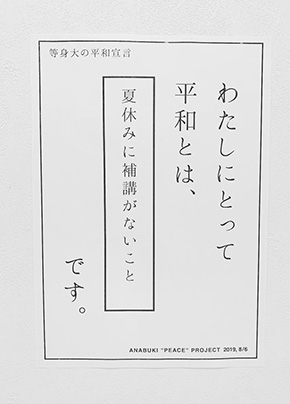 等身大の平和宣言
わたしにとって
平和とは、
夏休みに補講がないこと
です。
ANABUKI "PEACE" PROJECT 2019, 8/6